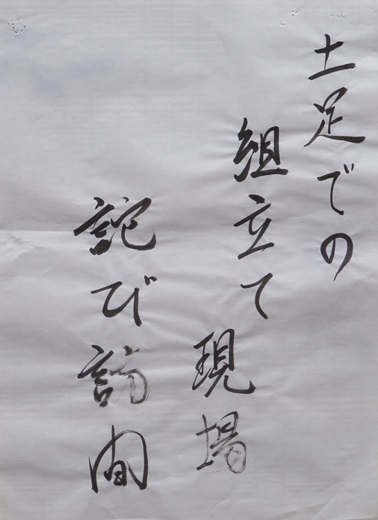 土足での
組立て現場
詫び訪問